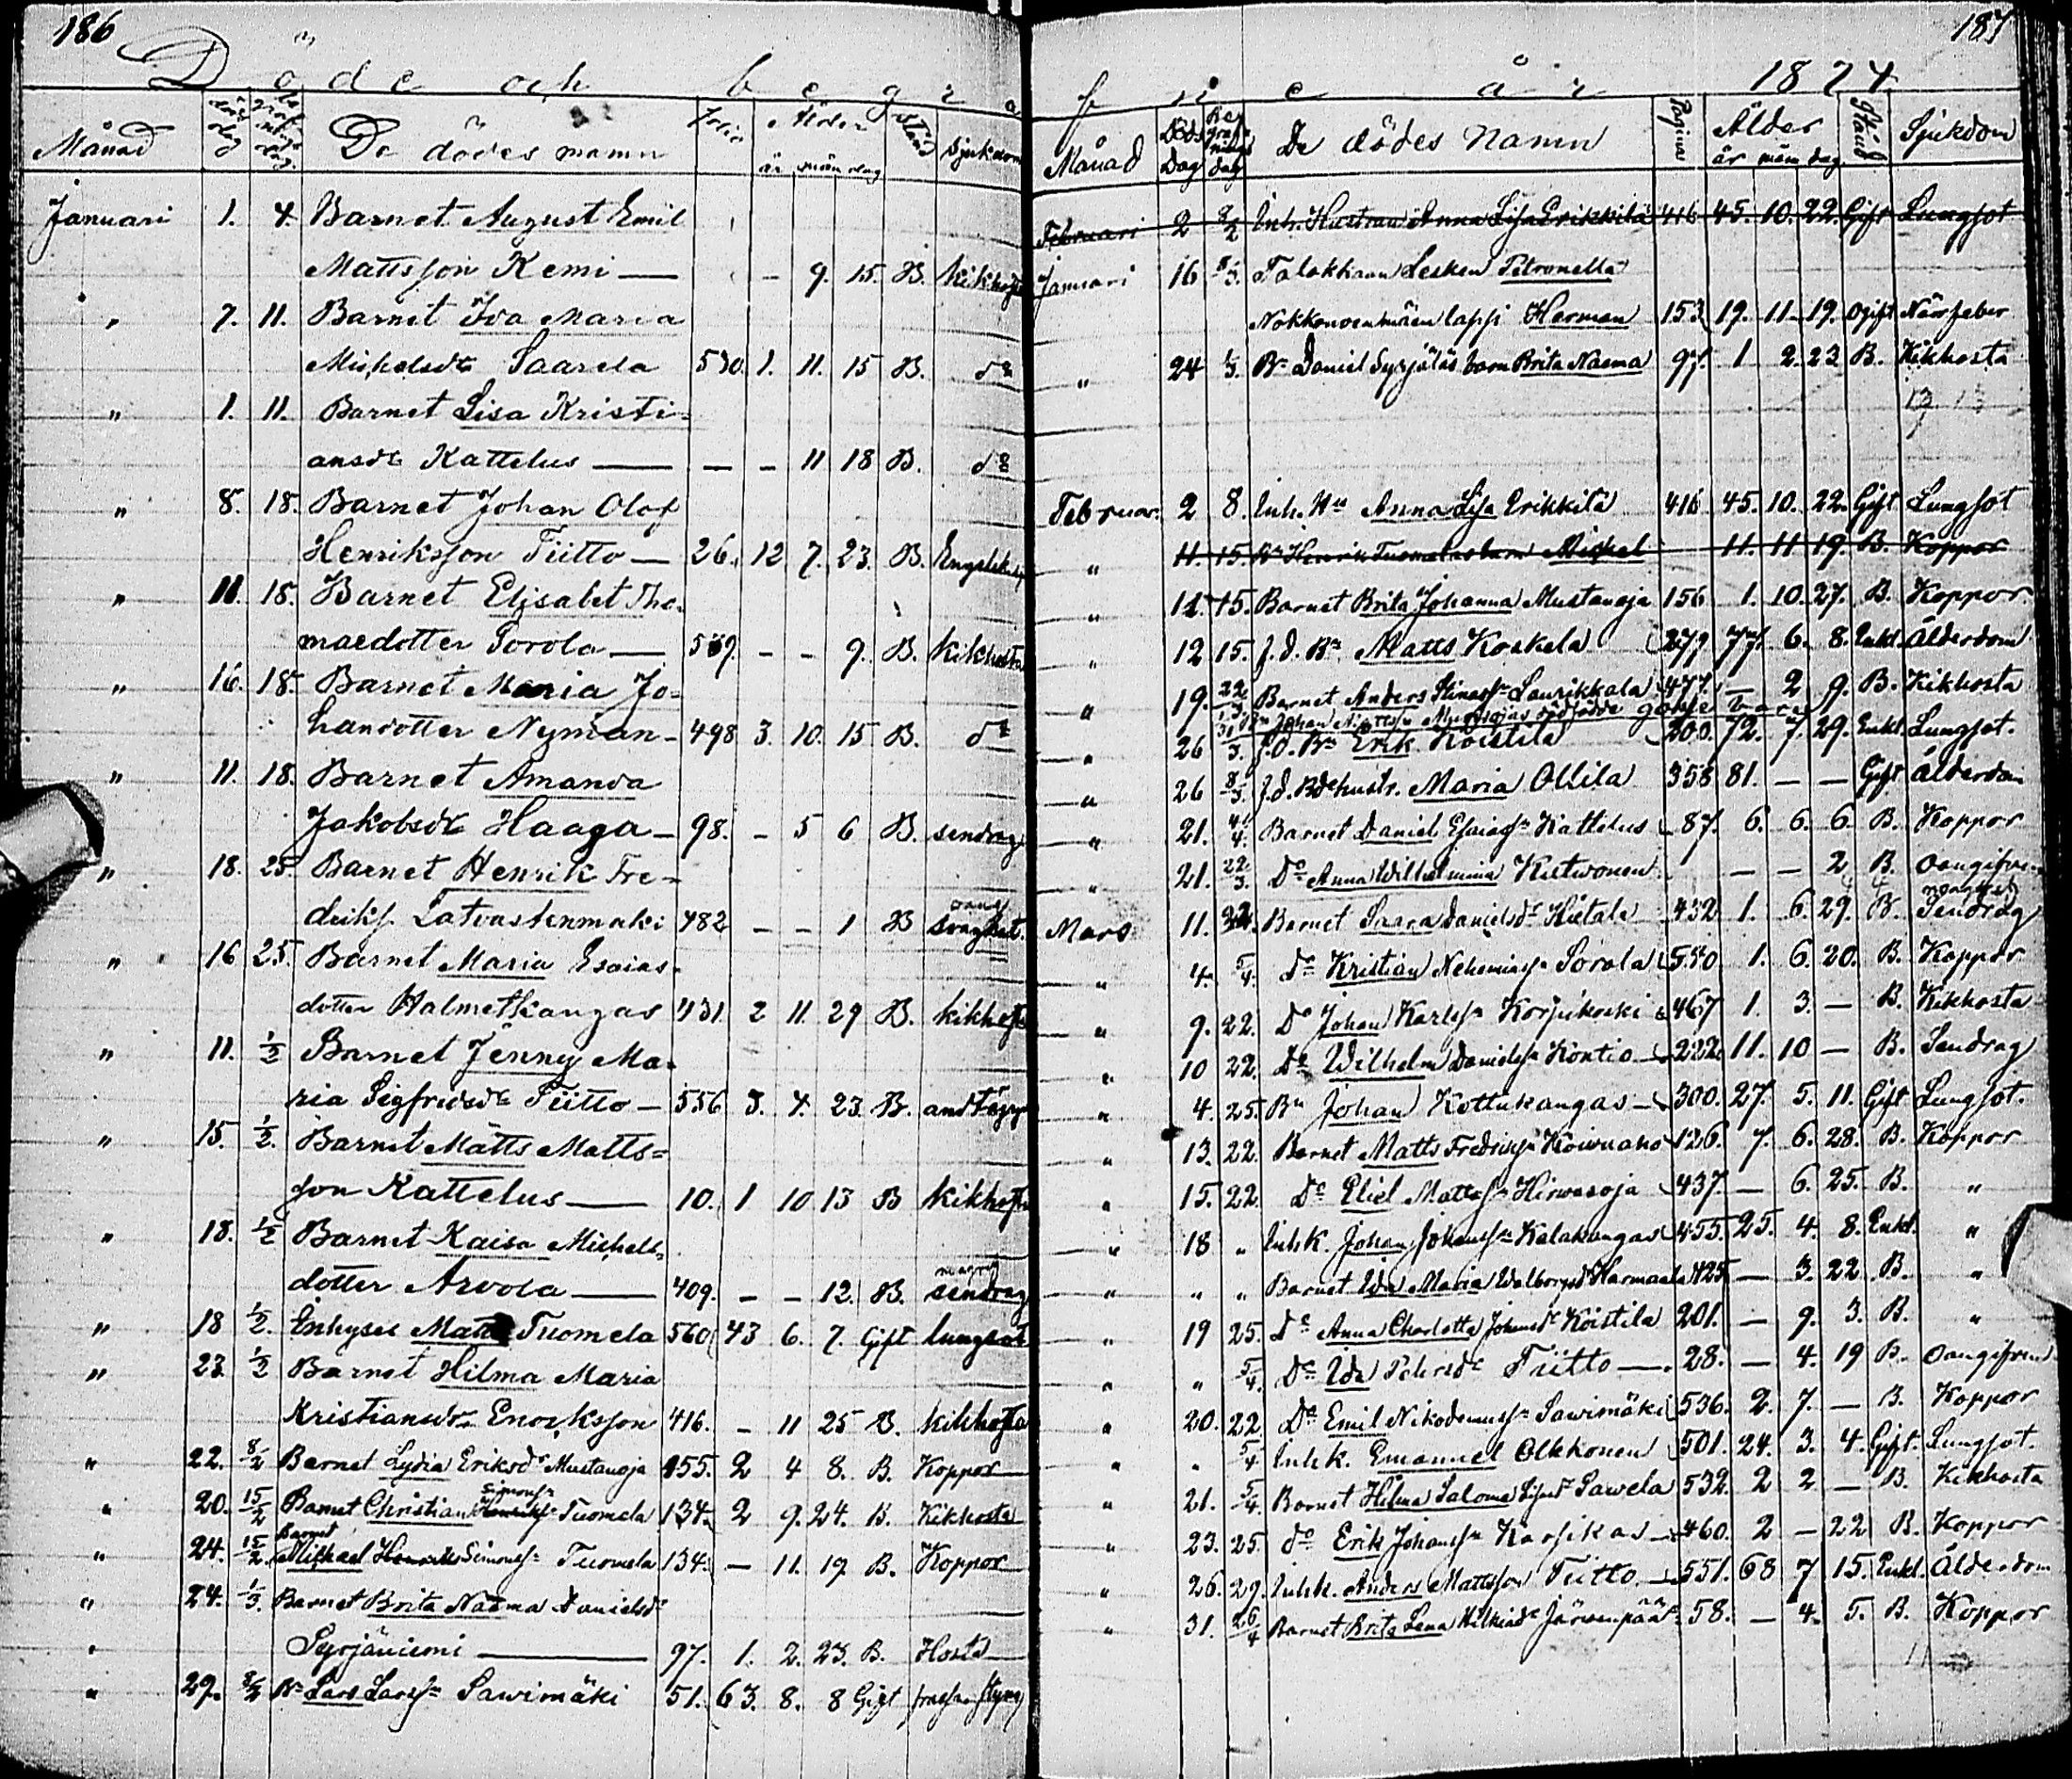 186
Döde och begra
Månad Folio Ålder Stånd Sjukdom
De dödes namn
år mån dag
Januari 1. 4. Barnet August Emil
Mattsson Kemi — - 9. 15. B. kikhosta
" 7. 11. Barnet Iva Maria
Michelsdr Saarela 530. 1. 11. 15 B. do
" 1. 11. Barnet Lisa Kristi=
ansdr Kattelus — — - 11 18 B. do
" 8. 18. Barnet Johan Olof
Henriksson Tiitto — 26. 12 7. 23. B.
" 11. 18. Barnet Elisabet Tho-
maedotter Sorola — 509. - - 9. B. kikhosta
" 16. 18. Barnet Maria Jo=
handotter Nyman - 498 3. 10. 15 B. do
" 11. 18. Barnet Amanda
Jakobsdr Haaga - 98. - 5 6 B. sendrag
" 18. 25. Barnet Henrik Fre-
driks. Latvastenmäki 482 - - 1 B svaghet.
" 16 25. Barnet Maria Esaias-
dotter Halmetkangas 431. 2 11. 29 B. kikhosta
" 11. 1/2 Barnet Jenny Ma-
ria Sigfridsdr Tiitto - 556 3. 4. 23. B.
" 15. 1/2. Barnet Matts Matts=
son Kattelus — 10. 1 10 13 B kikhosta
" 18. 1/2 Barnet Kaisa Michels-
dotter Arvola — 409. - - 12. B. sendrag
" 18 1/2. Enhyses Matts Tuomela 560 43 6. 7. Gift lungsot
" 23 1/2 Barnet Hilma Maria
Kristiansdr Enoksson 416. - 11 25 B. kikhosta
" 22. 8/2 Barnet Lydia Eriksdr Mustaoja 155. 2 4 8. B. Koppor
" 20. 15/2 Barnet Christian Simonsn Tuomela 134. 2 9. 24. B. Kikhosta
" 24. 15/2. Barnet Mickael Simonsn Tuomela 134. - 11. 19. B. Koppor
" 24. 1/3. Barnet Brita Naema Danielsdr
Syrjäniemi — 97. 1. 2. 23. B. Hosta
" 29. 8/2 Bn Lars Larssn Sawimäki 51. 63. 8. 8 Gift
187
f n e år 1874
Månad Döds Dag Begrafnings dag De dödes Namn Pagina Ålder Stånd Sjukdom
år mån dag
Februari 2 8/2 Inh. Hustrun Anna Lisa Erikkilä 416 45. 10. 22. Gift Lungsot
Januari 16 Petronella
Herman 153 19. 11. 19. Ogift Närfeber
" 24 1/3. Bn Daniel Syrjäläs barn Brita Naema 97. 1 2. 23 B. Kikhosta
13 13
Februar. 2 8. Inh. Hu Anna Lisa Erikkilä 416 45. 10. 22. Gift Lungsot
" 11. 15. Bn Henrik Tuomelas barn Mickel 11. 11 19. B. Koppor
" 12. 15. Barnet Brita Johanna Mustaoja 156 1. 10. 27. B. Koppor
" 12 15. f.d. Bn Matts Koskela 279 77. 6. 8. Enkl. Ålderdom
" 19. 22. Barnet Anders Laurikkala 477. — 2 9. B. Kikhosta
" 26 f.d. Bn Erik Koistila 200. 72. 7. 29. Enkl. Lungsot.
" 26 8/3. f.d. Bdehustr. Maria Ollila 358 81. — — Gift Ålderdom
" 21. 4/4. Barnet Daniel Esaiassn Kattelus 87. 6. 6. 6 B. Koppor
" 21. 22/3. Do Anna Wilhelmina Kestinonen — — 2 B. Oangifven
Mars 11. 22. Barnet Saara Danielsdr Hietala 432 1. 6. 29. B. Sendrag
" 4. 5/4. Do Kristian Nehemiassn Sorola 550 1. 6. 20. B. Koppor
" 9. 22. Do Johan Karlssn Korjukoski 467 1. 3. — B. Kikhosta
" 10 22. Do Wilhelm Danielssn Kontio 222. 11. 10 — B. Sendrag
" 4. 25. Bn Johan Kottukangas 300. 27. 5. 11. Gift Lungsot.
" 13. 22. Barnet Matts Fredrikssn Koiwuaho 126. 7. 6. 28. B. Koppor
" 15. 22 Do Eliel Mattssn Hirwasoja 437. — 6. 25. B. "
" 18 " Inhk. Johan Johanssn Kalakangas 455. 25. 4. 8. Enkl. "
" " " Barnet Ida Maria Walborgsdr Harmaala 425 — 3. 22 B. "
" 19 25. Do Anna Charlotta Johansdr Koistila 201. — 9. 3. B. "
" " 5/4. Do Ida Pehrsdr Tiitto — 28. — 4. 19 B. Oangifven
" 20. 22. Do Emil Nikodemussn Sawimäki 536. 2. 7. — B. Koppor
" " 5/4 Inhk. Emanuel Olkkonen 501. 24. 3. 4. Gift. Lungsot.
" 21. 5/4 Barnet Hilma Saloma Sawela 532. 2 2 — B. Kikhosta
" 23. 25. do Erik Johanssn Karsikas 460. 2 — 22 B. Koppor
" 26. 29. Inhk. Anders Mattsson Tiitto 551. 68 7 15. Enkl. Ålderdom
" 31. 26/4 Barnet Brita Lena Hilkiasdr Järwenpää 58. — 4. 5. B. Koppor